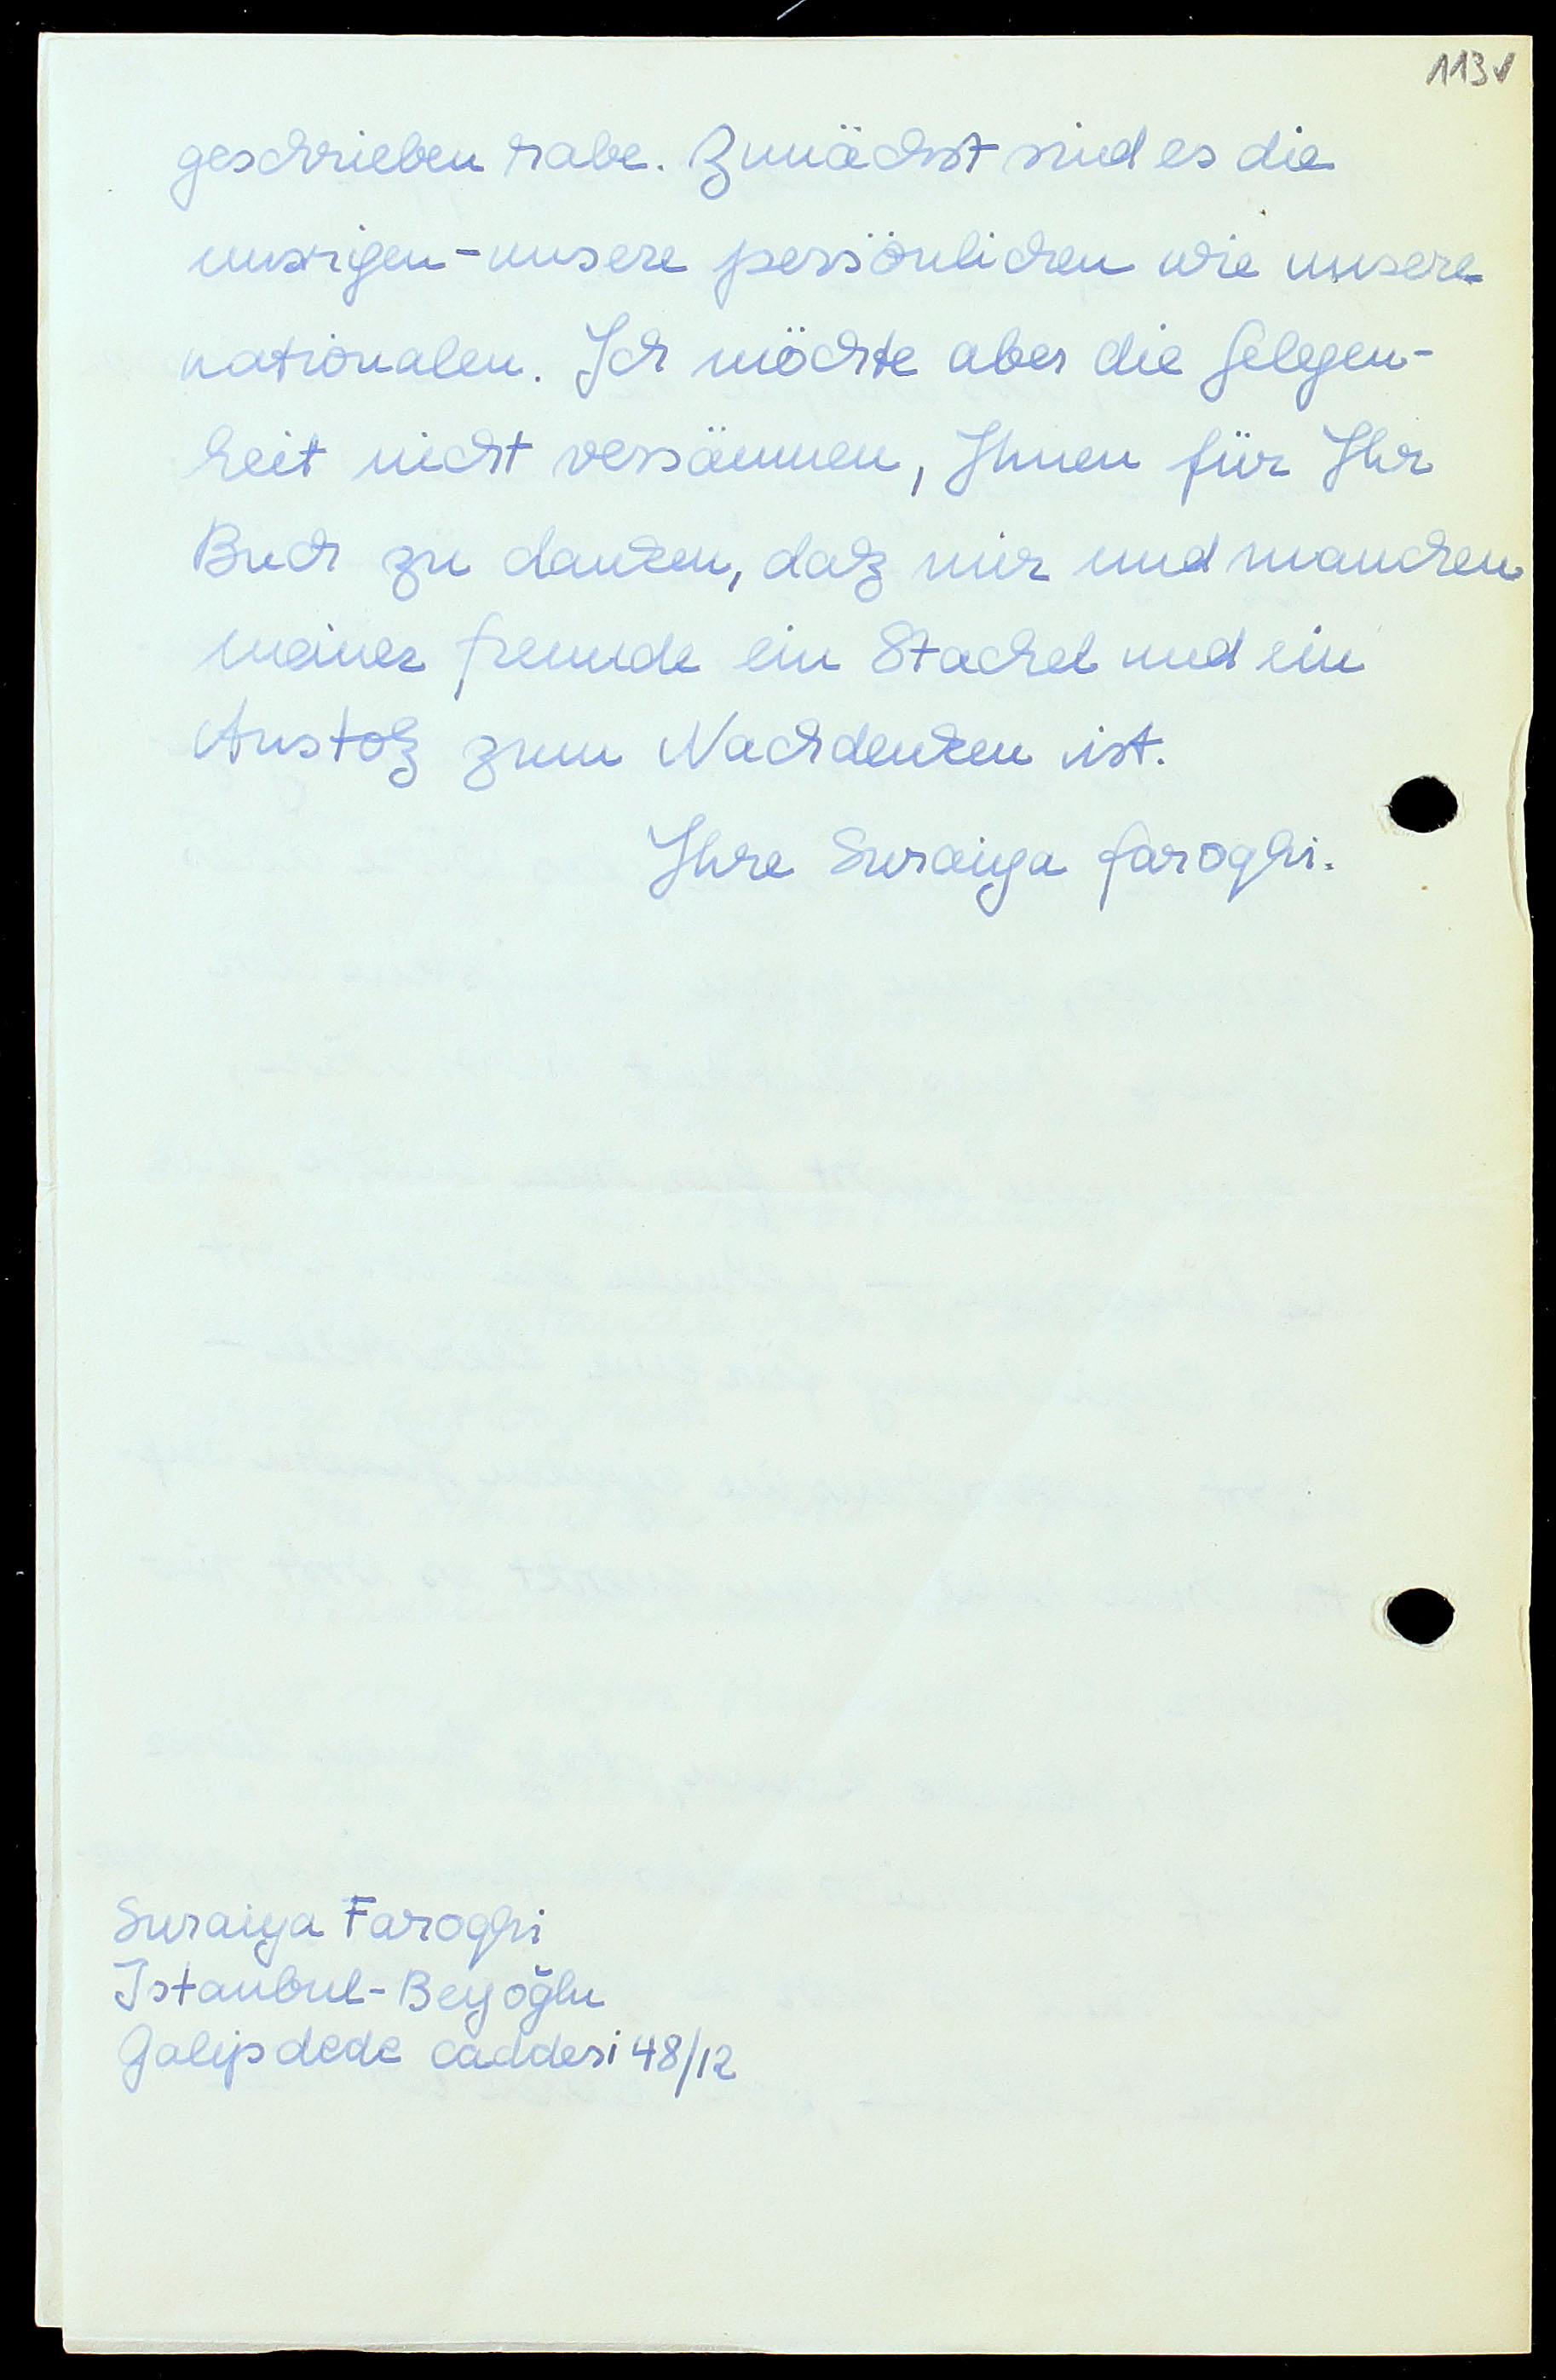 113v
geschrieben habe. Zunächst sind es die
unsrigen - unsere persönlichen wie unsere
nationalen. Ich möchte aber die Gelegen-
heit nicht versäumen, Ihnen für Ihr
Buch zu danken, daß mir und manchen
meiner Freunde ein Stachel und ein
Anstoß zum Nachdenken ist.
Ihre Suraiya Faroqhi.
Suraiya Faroqhi
Istanbul - Beyoğlu
Galipdede caddesi 48/12